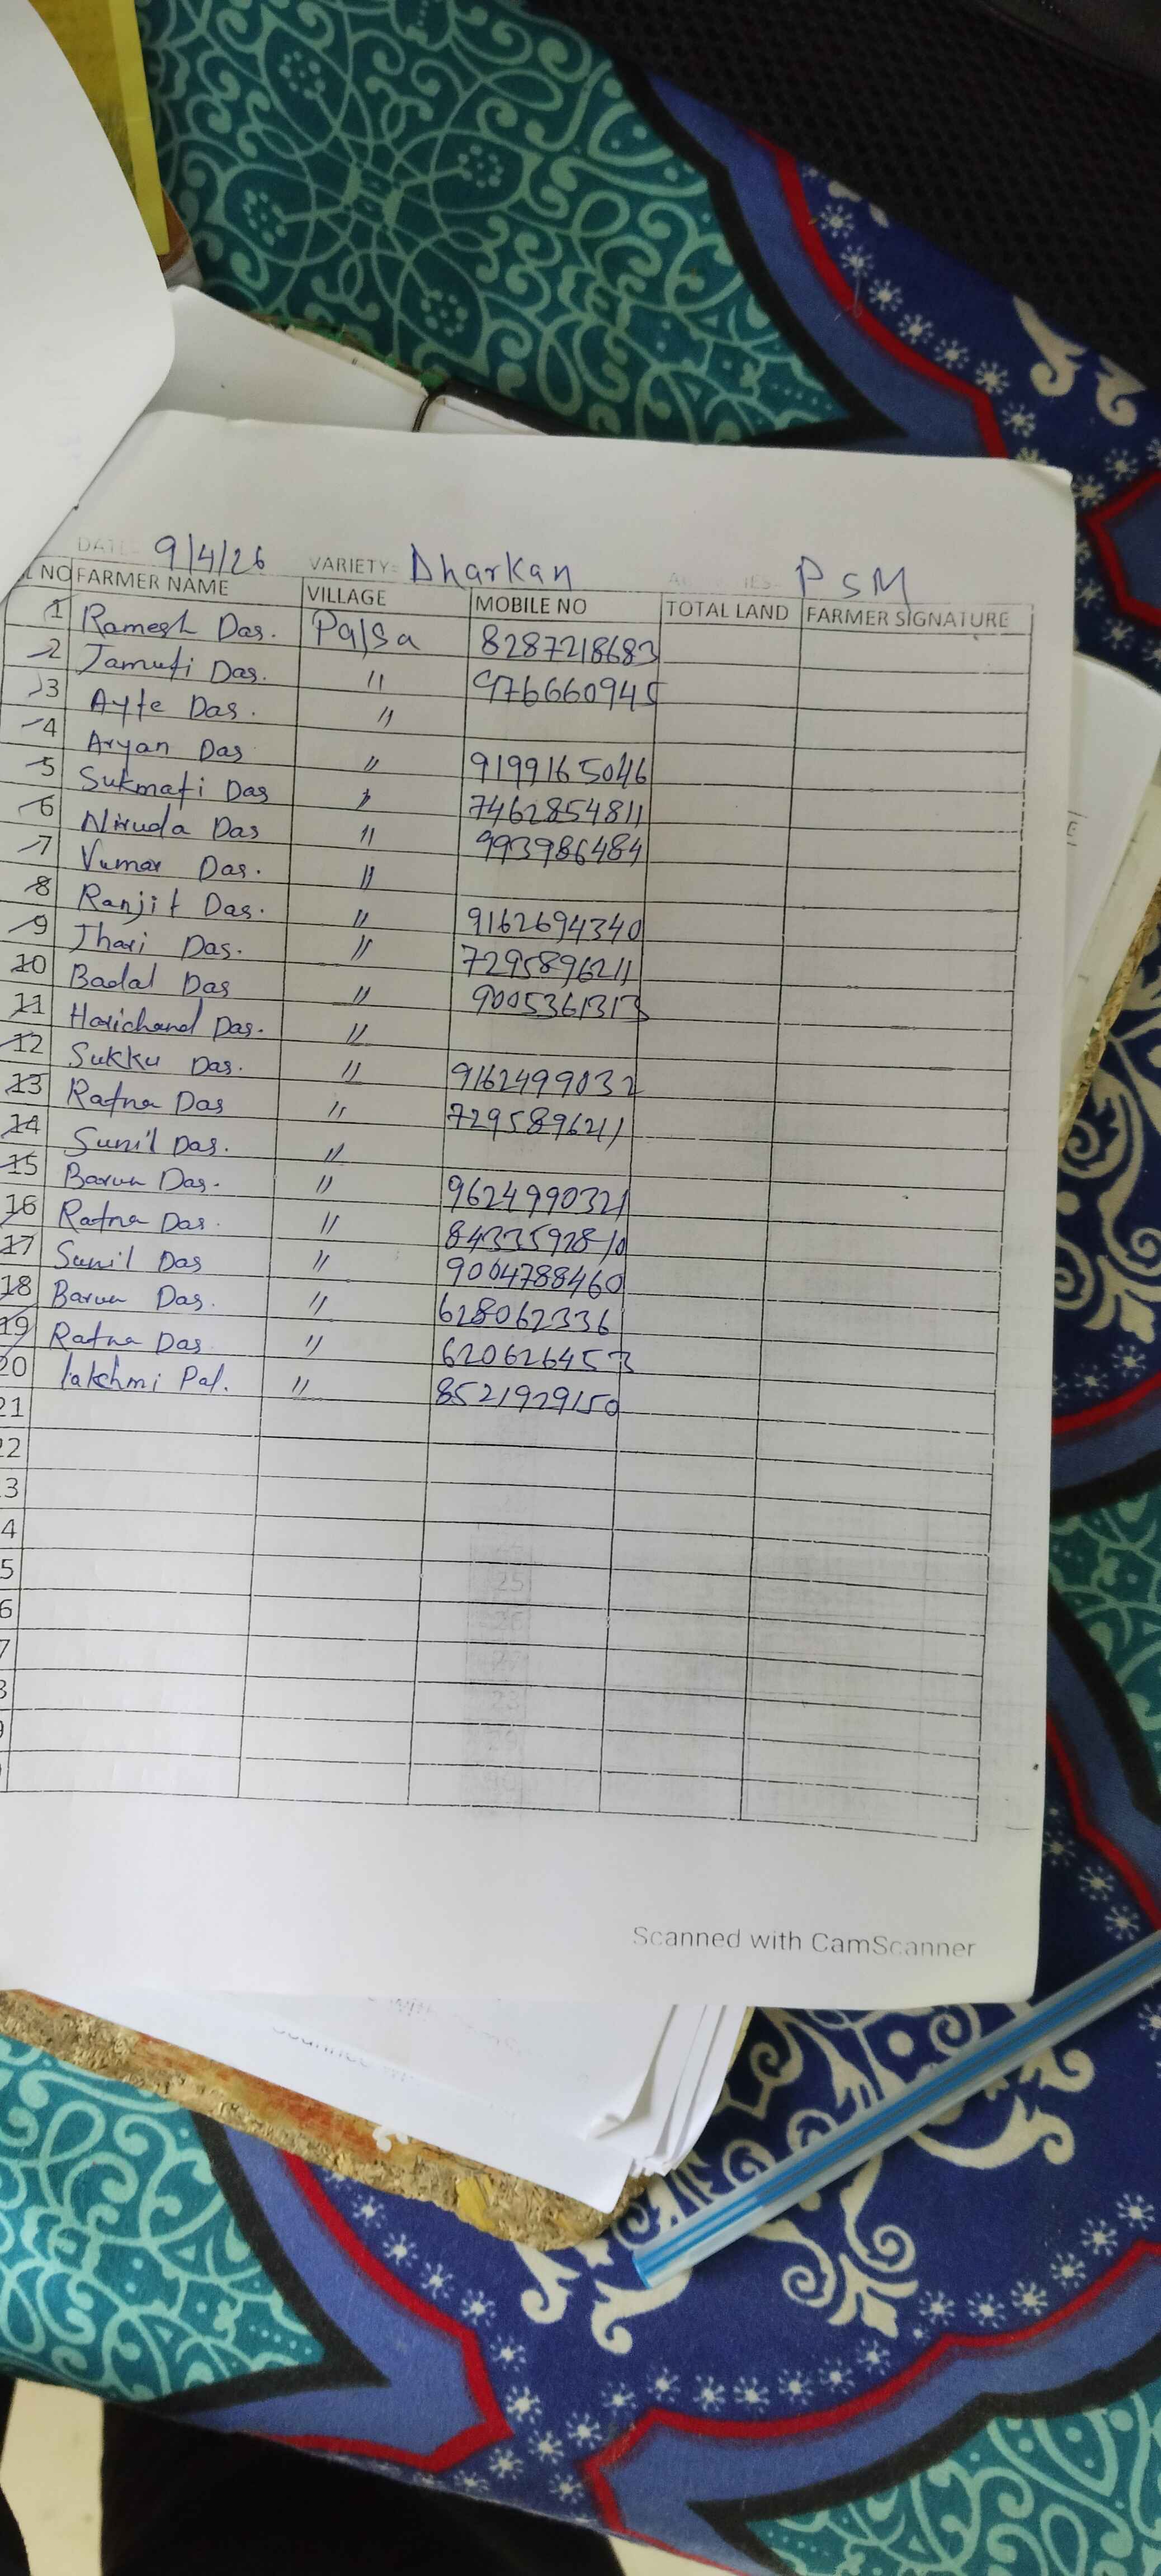 DATE 9/4/26 VARIETY= Dharkan PSM
NO FARMER NAME VILLAGE MOBILE NO TOTAL LAND FARMER SIGNATURE
1 Ramesh Das. Palsa 8287218683
2 Jamuti Das. " 976660945
3 Ayte Das. "
4 Aryan Das " 9199165046
5 Sukmati Das " 7462854811
6 Niruda Das " 993986484
7 Vumar Das. "
8 Ranjit Das. " 9162694340
9 Jhari Das. " 7295896211
10 Badal Das " 9005361313
11 Harichand Das. "
12 Sukku Das. " 9162499032
13 Ratna Das " 7295896211
14 Sunil Das. "
15 Barun Das. " 9624990321
16 Ratna Das. " 8433592810
17 Sunil Das " 9004788460
18 Barun Das. " 628062336
19 Ratna Das " 620626453
20 lakhmi Pal. " 8521929150
21
22
3
4
5
6
7
8
9
Scanned with CamScanner